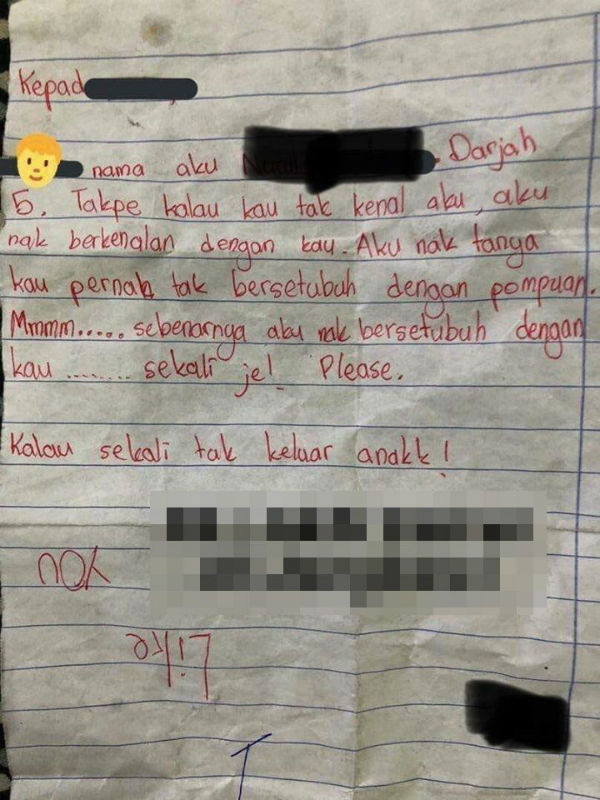 Kepad
nama aku . Darjah
5. Takpe kalau kau tak kenal aku, aku
nak berkenalan dengan kau. Aku nak tanya
kau pernah tak bersetubuh dengan pompuan.
Mmmm..... sebenarnya aku nak bersetubuh dengan
kau ........ sekali je! Please.
Kalau sekali tak keluar anakk!
you
Like
I